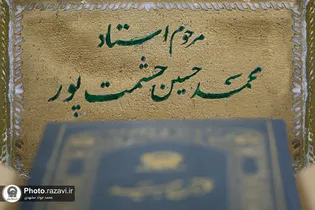 مرحوم استاد
محمد حسین حشمت پور
Photo.razavi.ir